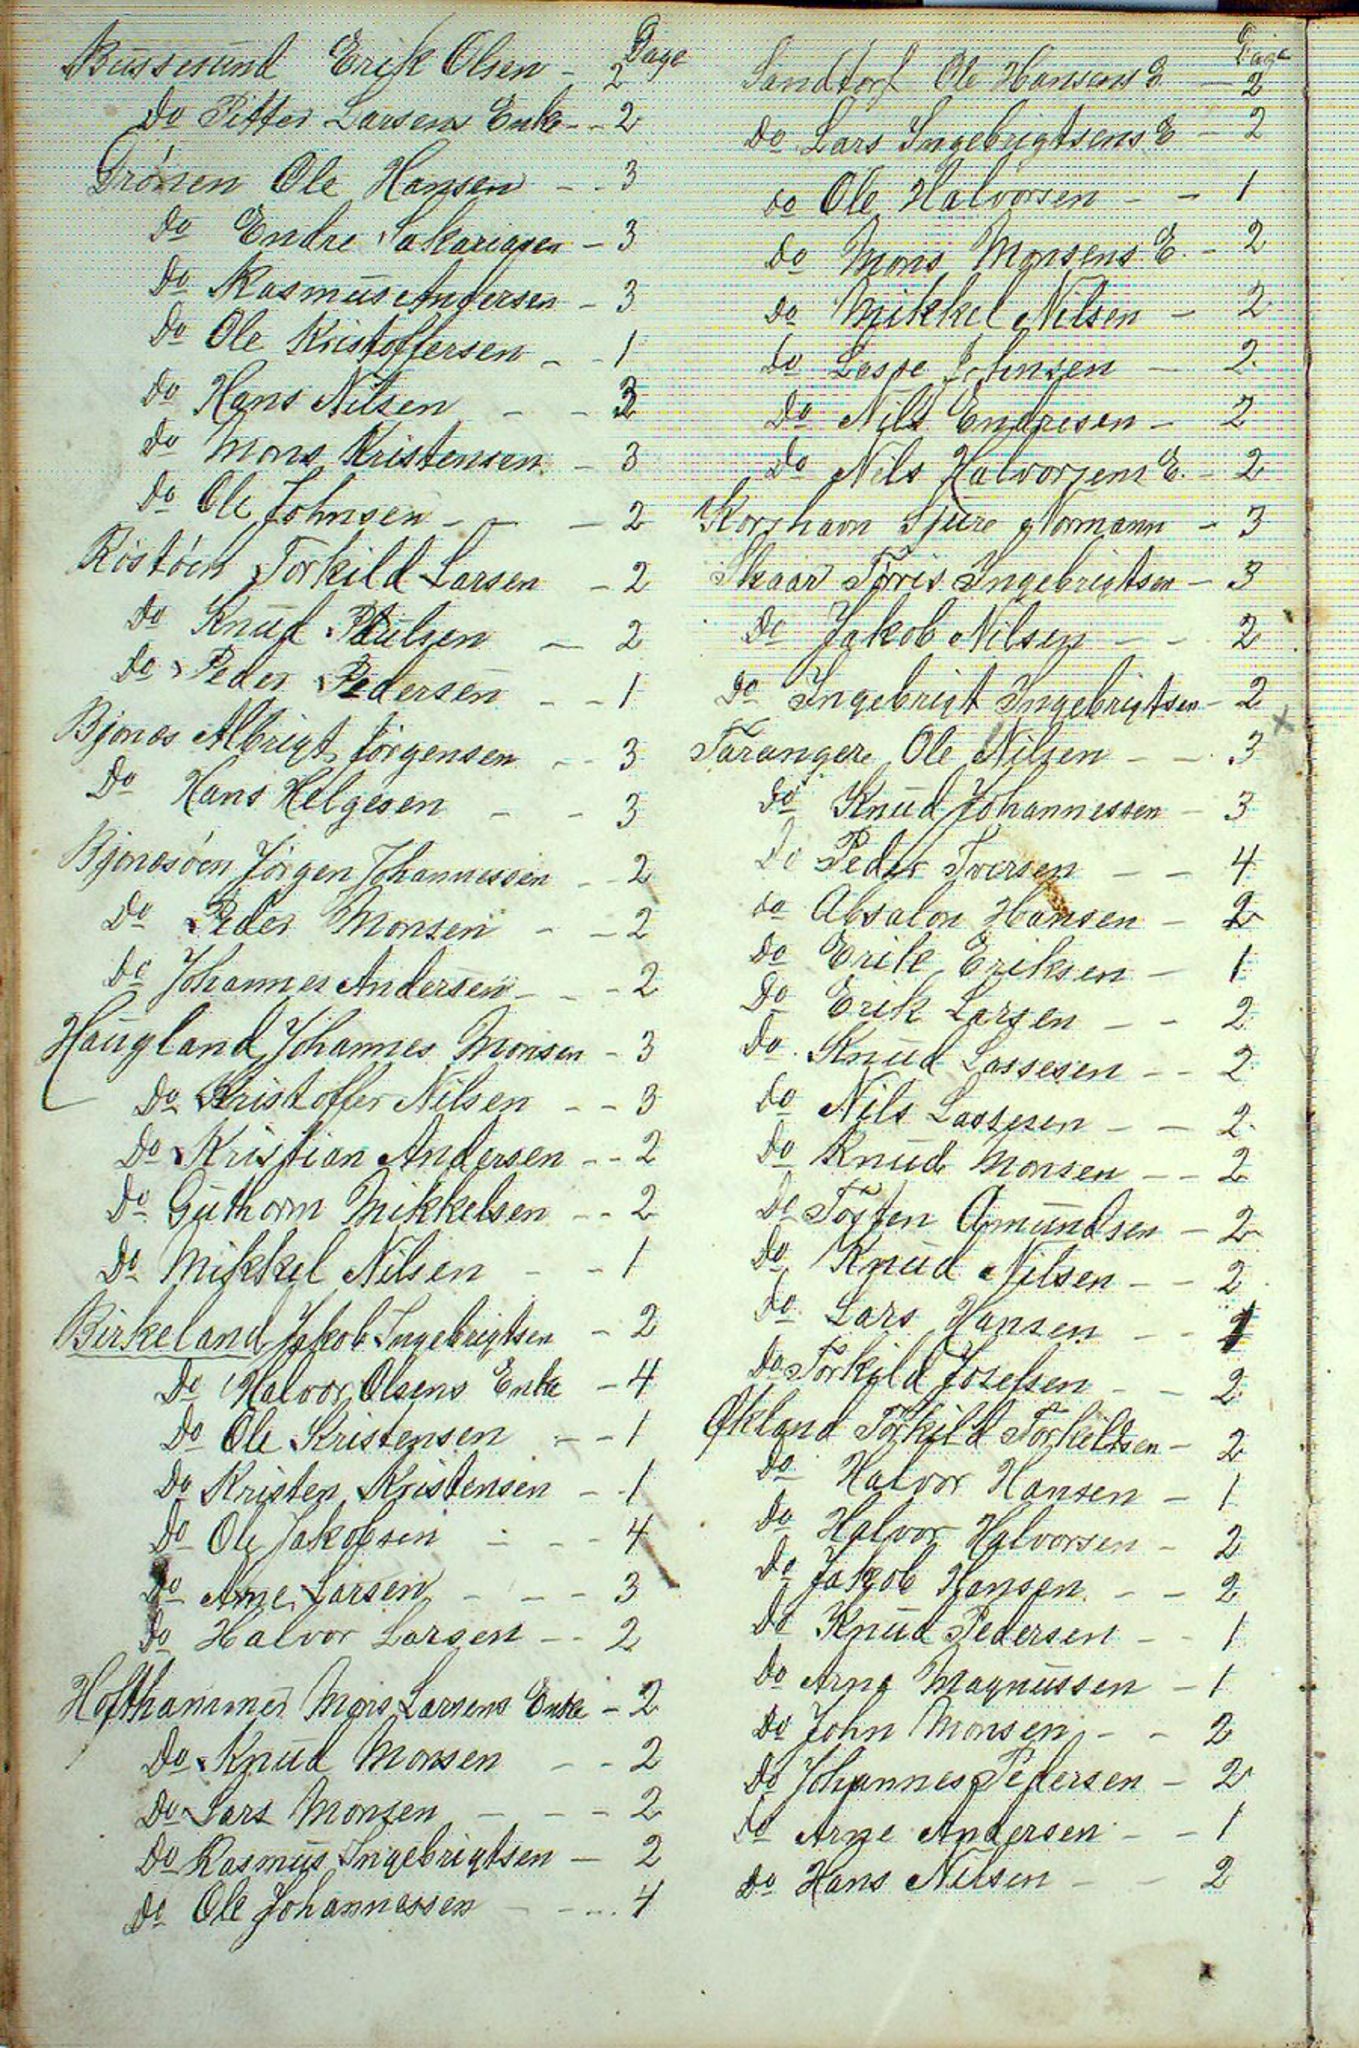 Dage
Bussesund Erik Olsen - 2
Do Pitter Larsens Enke - - 2
Drönen Ole Hansen - - 3
Do Endre Sakariasen - 3
Do Rasmus Andersen - 3
Do Ole Kristoffersen - - 1
Do Hans Nilsen - - 3
Do Mons Kristensen - 3
Do Ole Johnsen - - - 2
Röstöen Torkild Larsen - 2
Do Knud Paulsen - 2
Do Peder Pedersen - - 1
Bjones Albrigt Jörgensen - - 3
Do Hans Helgesen - - 3
Bjonesöen Jörgen Johannessen - - 2
Do Peder Monsen - - 2
Do Johannes Andersen - - - 2
Haugland Johannes Monsen - 3
Do Kristoffer Nilsen - - 3
Do Kristian Andersen - - 2
Do Guthorm Mikkelsen - - 2
Do Mikkel Nilsen - - 1
Birkeland Jakob Ingebrigtsen - 2
Do Halvor Olsens Enke - 4
Do Ole Kristensen - - 1
Do Kristen Kristensen - - 1
Do Ole Jakobsen - - - 4
Do Arne Larsen - - - 3
Do Halvor Larsen - - 2
Hofthammer Mons Larsens Enke - 2
Do Knud Monsen - - 2
Do Lars Monsen - - - 2
Do Rasmus Ingebrigtsen - 2
Do Ole Johannessen - - - 4
Dage
Sandtorf Ole Hansens E. - 2
Do Lars Ingebrigtsens E - 2
do Ole Halvorsen - - 1
Do Mons Monsens E. - 2
Do Mikkel Nilsen - 2
Do Johnsen - 2
Do Nils Endresen - 2
Do Nils Halvorsens E. - 2
Korshavn Sjure Normann - 3
Skaar Törris Ingebrigtsen - 3
Do Jakob Nilsen - - 2
Do Ingebrigt Ingebrigtsen - 2
Tarangere Ole Nilsen - - 3
Do Knud Johannessen - 3
Do Peder Iversen - - 4
do Absalon Hansen - 2
Do Erik Eriksen - 1
Do Erik Larsen - - 2
Do Knud Lassesen - - 2
do Nils Lassesen - - 2
Do Knud Monsen - - 2
Do Torsten Amundsen - 2
Do Knud Nilsen - - 2
Do Lars Hansen - - 1
Do Torkild Josefsen - - 2
Økland Torkild Torkildsen - 2
Do Halvor Hansen - 1
Do Halvor Halvorsen - 2
Do Jakob Hansen - - 2
Do Knud Pedersen - - 1
Do Arne Magnussen - 1
Do John Monsen - - 2
Do Johannes Pedersen - 2
Do Arne Andersen - - 1
Do Hans Nilsen - - 2